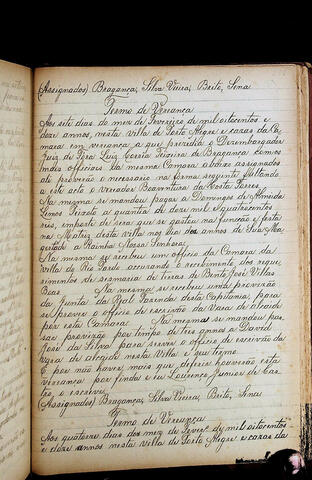 (Assignados) Bragança, Silva Vieira, Brito, Sena
Termo de Vereança
Aos sete dias do mez de Fevereiro de mil oitocentos e
doze annos, nesta villa de Porto Alegre e cazas da Ca-
mara em vereança a que prezidio o Dezembargador
Juiz de Fora Luiz Correia Teixeira de Bragança com os
mais officiaes da mesma Camara abaixo assignados
ahi proverão o necessario na forma seguinte faltando
a este acto o vereador Boaventura da Costa Torres.
Na mesma se mandou pagar a Domingos de Almeida
Lemos Peixoto a quantia de doze mil e quatrocentos
reis, importe de cera que se gastou na função e festa
na Matriz desta villa nos dias dos annos de Sua Mag
estade a Rainha Nossa Senhora.
Na mesma se recebeu um officio da Camara da
villa do Rio Pardo accuzando o recebimento dos reque
rimentos de sesmaria de terras de Bento José Villas
Boas. Na mesma se recebeu uma provizão
da Junta da Real Fazenda desta Capitania, para
se prover o officio de escrivão da Vara de Alcaide
por esta Camara. Na mesma se mandou pas-
sar provizão por tempo de tres annos a David
José da Silva para servir o officio de escrivão da
vara de alcaide nesta Villa e seu termo.
E por não haver mais que deferir houverão esta
vereança por finda e eu Lourenço Junior de Cas-
tro, o escrevi.
(Assignados) Bragança, Silva Vieira, Brito, Sena
Termo de Vereança
Aos quatorze dias do mez de Fever.º de mil oitocentos
e doze annos nesta villa de Porto Alegre e cazas da